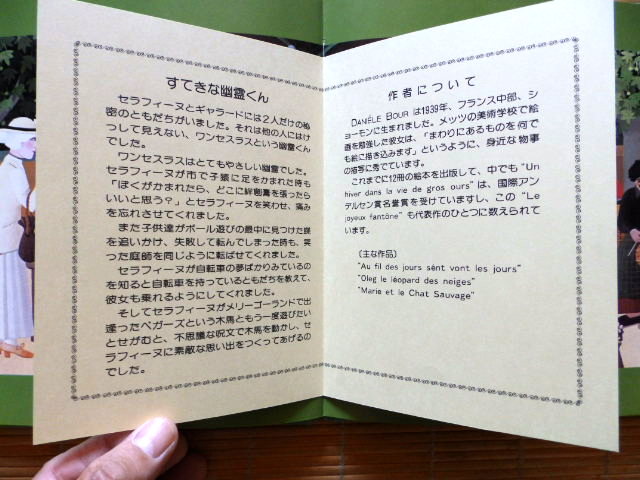 すてきな幽霊くん
セラフィーヌとギャラードには2人だけの秘
密のともだちがいました。それは他の人にはけ
っして見えない、ワンセスラスという幽霊くん
でした。
ワンセスラスはとてもやさしい幽霊でした。
セラフィーヌが市で子猿に足をかまれた時も
「ぼくがかまれたら、どこに絆創膏を張ったら
いいと思う?」とセラフィーヌを笑わせ、痛み
を忘れさせてくれました。
また子供達がボール遊びの最中に見つけた蝶
を追いかけ、失敗して転んでしまった時も、笑
った庭師を同じように転ばせてくれました。
セラフィーヌが自転車の夢ばかりみているの
を知ると自転車を持っているともだちを教えて、
彼女も乗れるようにしてくれました。
そしてセラフィーヌがメリーゴーランドで出
逢ったペガーズという木馬ともう一度遊びたい
とせがむと、不思議な呪文で木馬を動かし、セ
ラフィーヌに素敵な思い出をつくってあげるの
でした。
作者について
DANIÈLE BOUR は1939年、フランス中部、シ
ョーモンに生まれました。メッツの美術学校で絵
画を勉強した彼女は、「まわりにあるものを何で
も絵に描き込みます」というように、身近な物事
の描写に秀でています。
これまでに12冊の絵本を出版して、中でも"Un
hiver dans la vie de gros ours"は、国際アン
デルセン賞名誉賞を受けていますし、この"Le
joyeux fantône"も代表作のひとつに数えられて
います。
〔主な作品〕
"Au fil des jours sént vont les jours"
"Oleg le léopard des neiges"
"Marie et le Chat Sauvage"